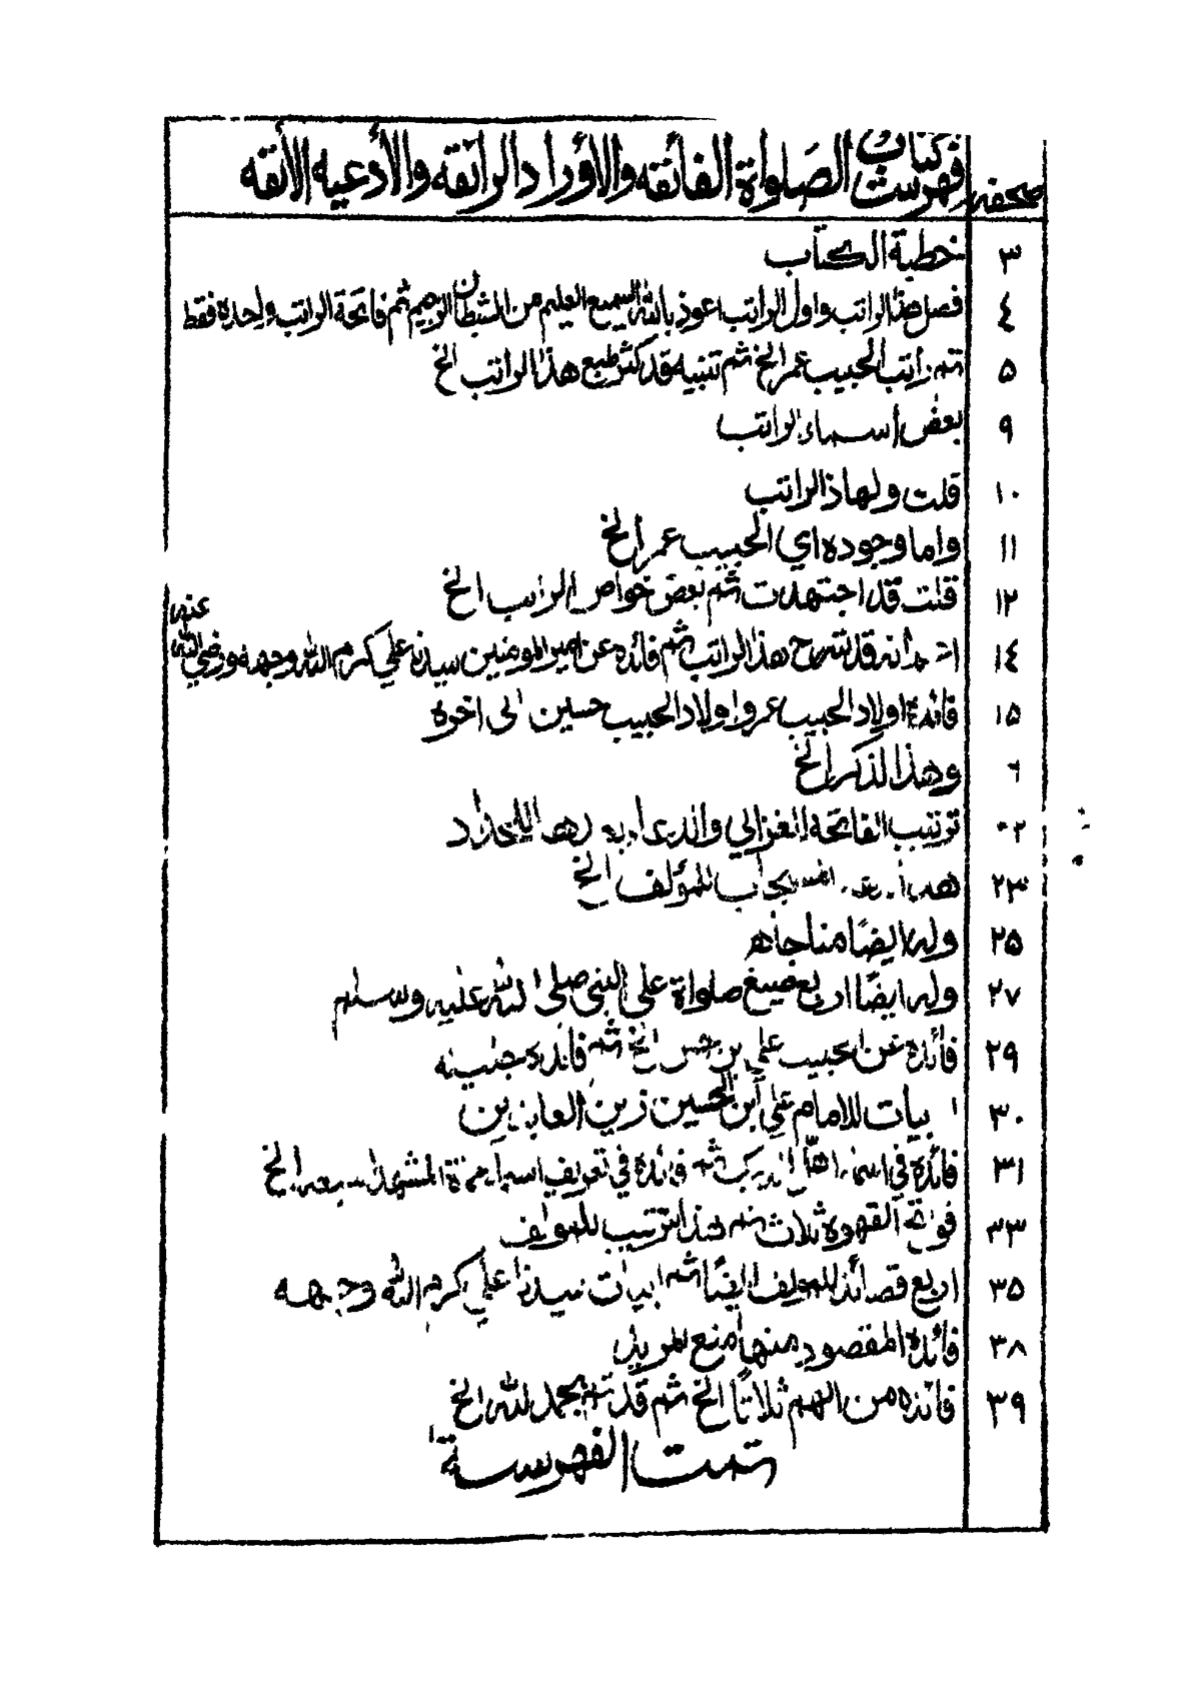 صحيفه فهرست كتاب الصلواة الفائقه والأوراد الرائقه والأدعيه الأنقه
٣ خطبة الكتاب
٤ فصل هذا الراتب واول الراتب اعوذ بالله السميع العليم من الشيطان الرجيم ثم فاتحة الراتب واحده فقط
٥ تتمه راتب الحبيب عمر الخ ثم تنبيه قد كثر طبع هذا الراتب الخ
٩ بعض اسماء الراتب
١٠ قلت ولهاذ الراتب
١١ واما وجوده اي الحبيب عمر الخ
١٢ قلت قد اجتهدت ثم بعض خواص الراتب الخ
١٤ انه قد شرح هذا الراتب ثم فائده عن امير المومنين سيدنا علي كرم الله وجهه ورضي الله عنه
١٥ فائدة اولاد الحبيب عمر واولاد الحبيب حسين الى اخره
٦ وهذا الذكر الخ
٢٠ ترتيب الفاتحه للغزالي والدعا
٢٣ للمؤلف الخ
٢٥ وله ايضًا مناجاه
٢٧ وله ايضًا اربع صيغ صلواة على النبي صلى الله عليه وسلم
٢٩ فائده عن الحبيب علي بن حسن الخ ثم فائده
٣٠ ابيات للامام علي ابن الحسين زين العابدين
٣١ فائده في اسماء اهل ثم فائده في تعريف الخ
٣٣ فواتح القهوه ثلاث ثم هذا ترتيب للمولف
٣٥ اربع قصائد للمولف ايضًا ثم ابيات سيدنا علي كرم الله وجهه
٣٨ فائده المقصود منها منع المريد
٣٩ فائده من اللهم ثلاثًا الخ ثم قد تم بحمد لله الخ
تمت الفهرسة